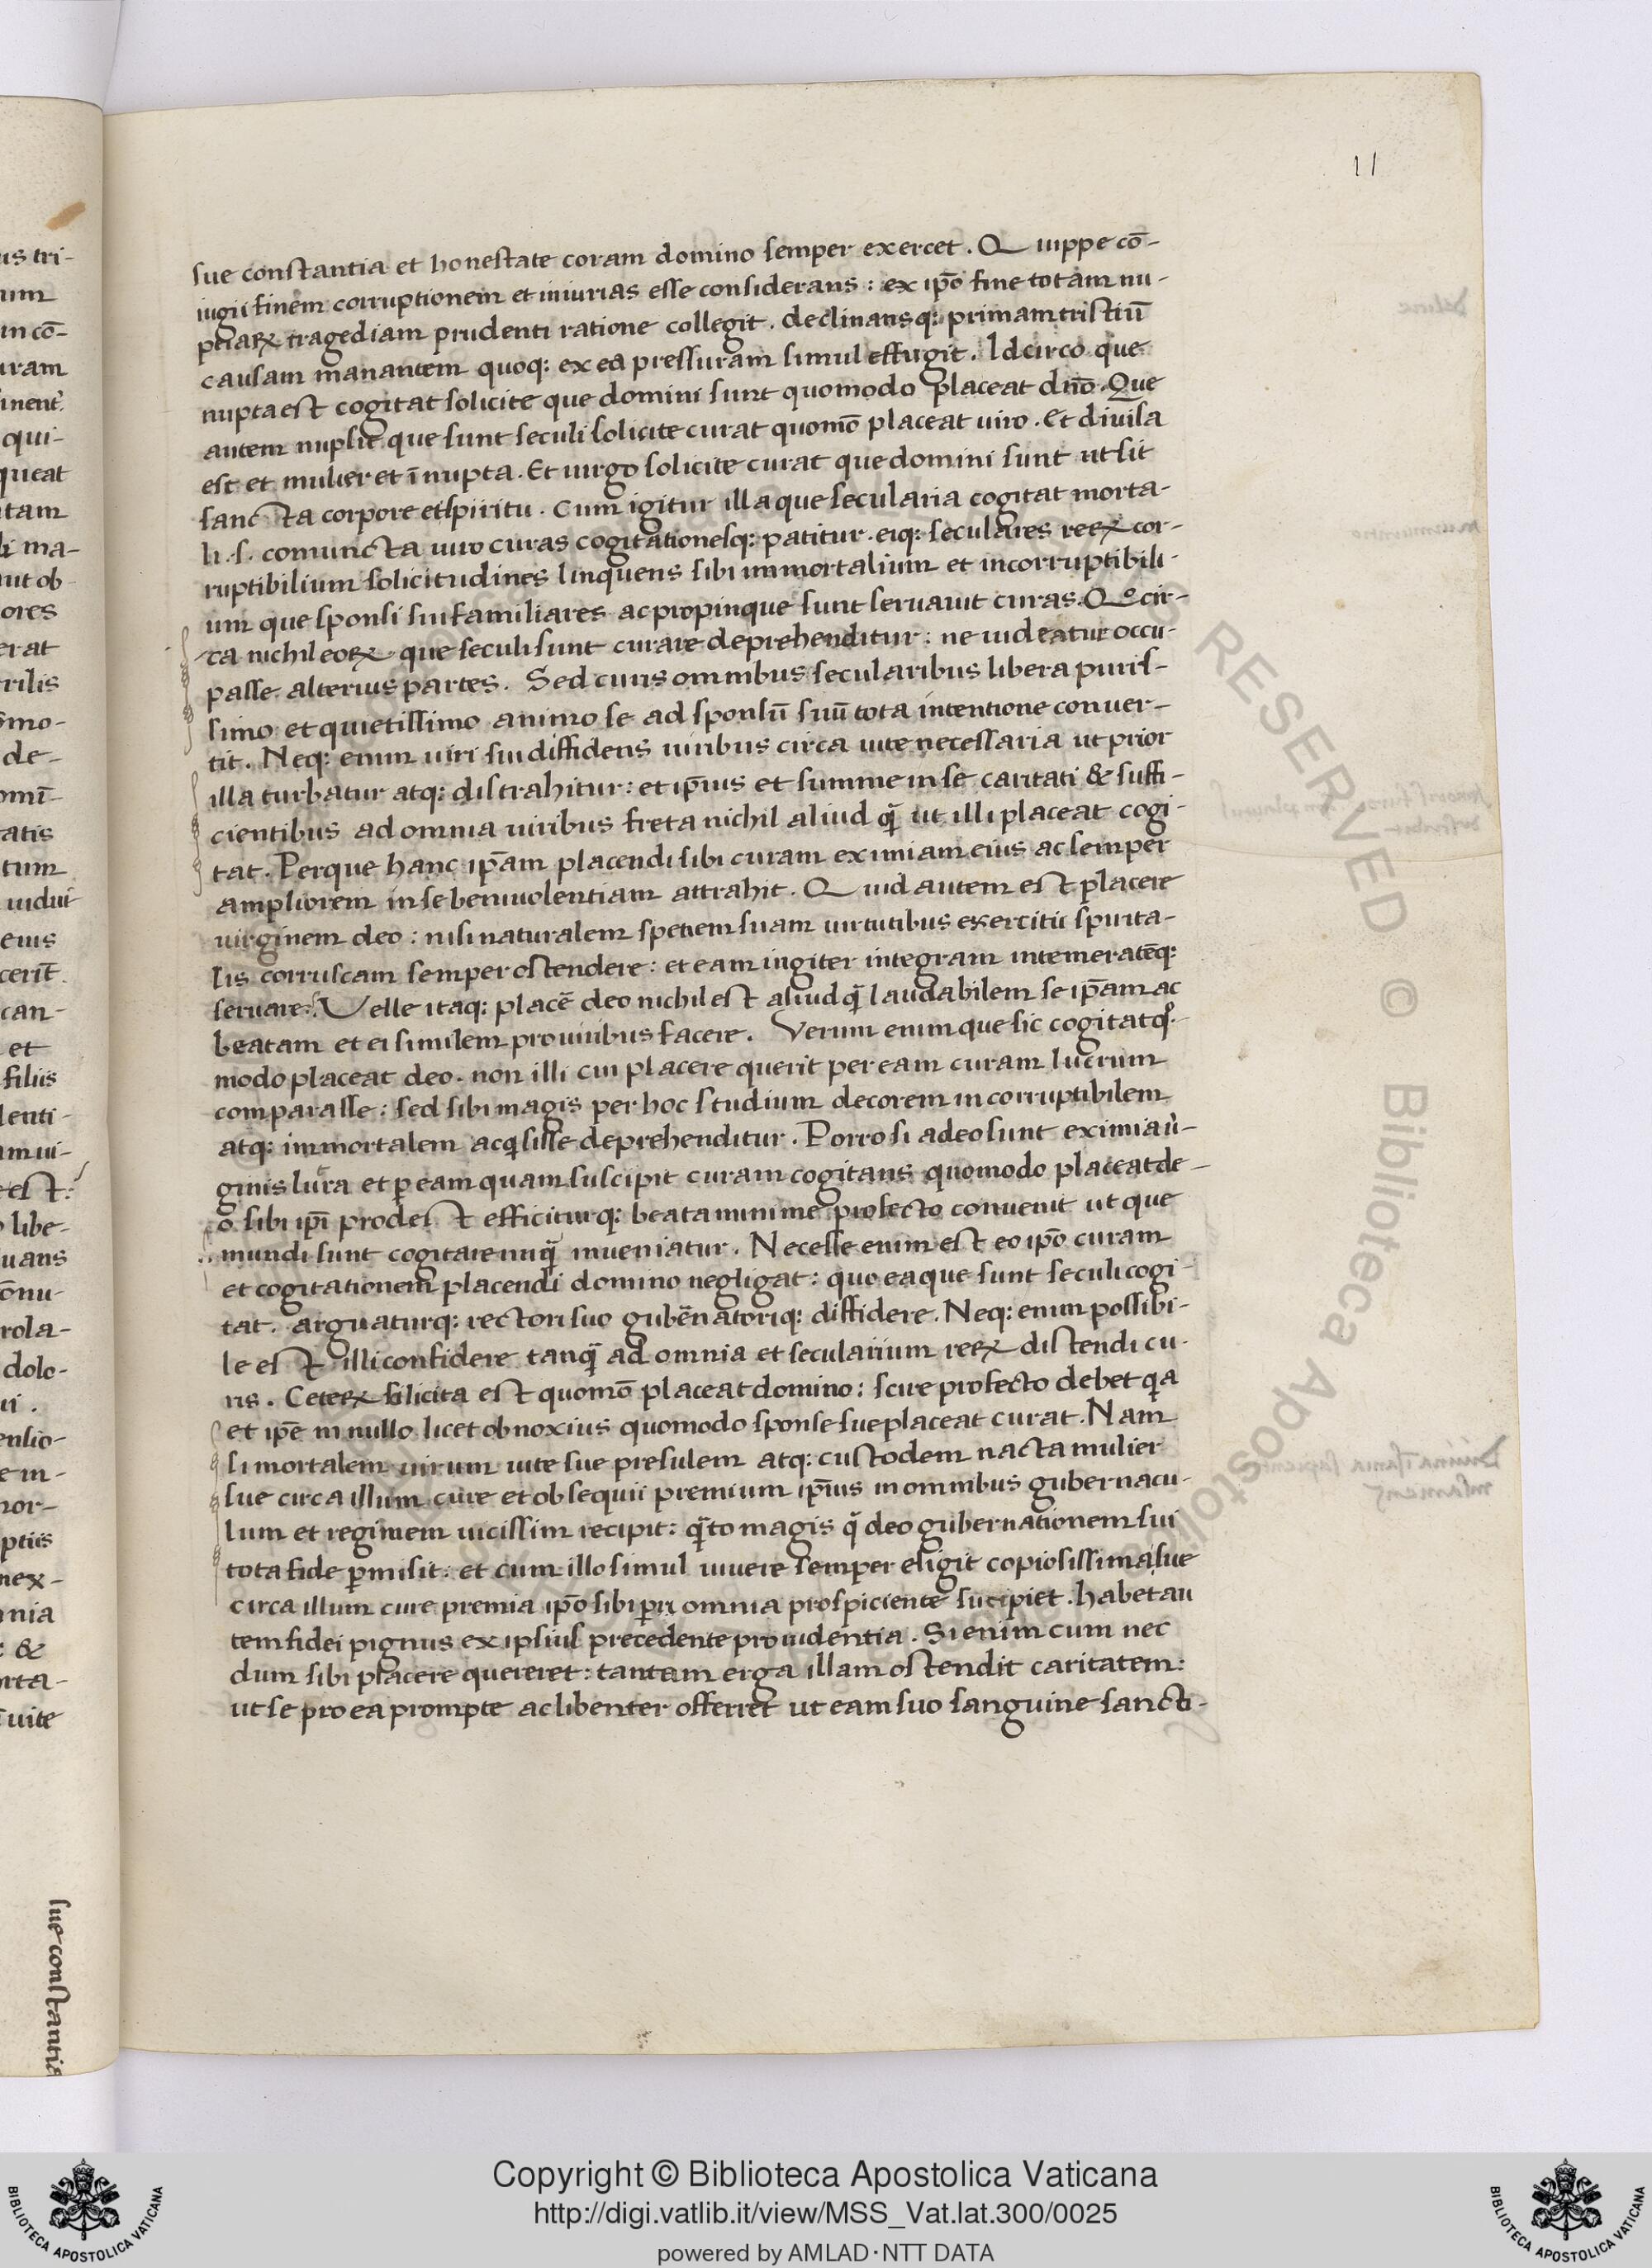 11
sue constantia et honestate coram domino semper exercet. Quippe cō-
iugii finem corruptionem et iniurias esse considerans: ex ip̄o fine totam nu-
ptiaꝝ tragediam prudenti ratione collegit. declinansq: primam tristiū
causam manantem quoq: ex ea pressuram simul effugit. Idcirco que
nupta est cogitat solicite que domini sunt quomodo placeat dn̄o. Que
autem nupsit que sunt seculi solicite curat quomō placeat uiro. Et diuisa
est et mulier et ī nupta. Et uirgo solicite curat que domini sunt ut sit
sancta corpore et spiritu. Cum igitur illa que secularia cogitat morta-
li .s. coniuncta uiro curas cogitationesq: patitur. eiq: seculares reꝝ cor-
ruptibilium solicitudines linquens sibi immortalium et incorruptibili-
um que sponsi sui familiares ac propinque sunt seruauit curas. Qº cir-
ca nichil eoꝝ que seculi sunt curare deprehenditur: ne uideatur occu-
passe alterius partes. Sed curis omnibus secularibus libera puris-
simo et quietissimo animo se ad sponsū suū tota intentione conuer-
tit. Neq: enim uiri sui diffidens uiribus circa uite necessaria ut prior
illa turbatur atq: distrahitur: et ip̄ius et summe in se caritati & suffi-
cientibus ad omnia uiribus freta nichil aliud q̄ ut illi placeat cogi-
tat. Perque hanc ip̄am placendi sibi curam eximiam eius ac semper
ampliorem in se beniuolentiam attrahit. Quid autem est placere
uirginem deo: nisi naturalem spetiem suam uirtutibus exercitii spirita-
lis corruscam semper ostendere: et eam iugiter integram intemeratēq:
seruare? Uelle itaq: placē deo nichil est aliud q̄ laudabilem se ip̄am ac
beatam et ei similem pro uiribus facere. Verum enim que sic cogitat qº-
modo placeat deo. non illi cui placere querit per eam curam lucrum
comparasse: sed sibi magis per hoc studium decorem incorruptibilem
atq: immortalem acq̇sisse deprehenditur. Porro si adeo sunt eximia ù-
ginis lucra et ꝑ eam quam suscipit curam cogitans quomodo placeat de-
o sibi ip̄i prodest efficiturq: beata minime profecto conuenit ut que
mundi sunt cogitare nūq̄ inueniatur. Necesse enim est eo ip̄o curam
et cogitationem placendi domino negligat: quo ea que sunt seculi cogi-
tat. arguaturq: rectori suo gubēnatoriq: diffidere. Neq: enim possibi-
le est illi confidere tanq̄ ad omnia et seculariium reꝝ distendi cu-
ris. Ceteꝝ solicita est quomō placeat domino: scire profecto debet q̇a
et ip̄e in nullo licet obnoxius quomodo sponse sue placeat curat. Nam
si mortalem uirum uite sue presulem atq: custodem nacta mulier
sue circa illum cure et obsequii premium ip̄ius in omnibus gubernacu-
lum et regimem uicissim recipit: q̄to magis q̄ deo gubernationem sui
tota fide ꝑmisit: et cum illo simul uiuere semper eligit copiosissima sue
circa illum cure premia ip̄o sibi omnia prospiciente sucipiet. habet au
tem fidei pignus ex ipsius precedente prouidentia. Si enim cum nec
dum sibi placere quereret: tantam erga illam ostendit caritatem:
ut se pro ea prompte ac libenter offerret ut eam suo sanguine sancti-
sue constantia
Copyright © Biblioteca Apostolica Vaticana
http://digi.vatlib.it/view/MSS_Vat.lat.300/0025
powered by AMLAD·NTT DATA
BIBLIOTECA APOSTOLICA VATICANA
BIBLIOTECA APOSTOLICA VATICANA